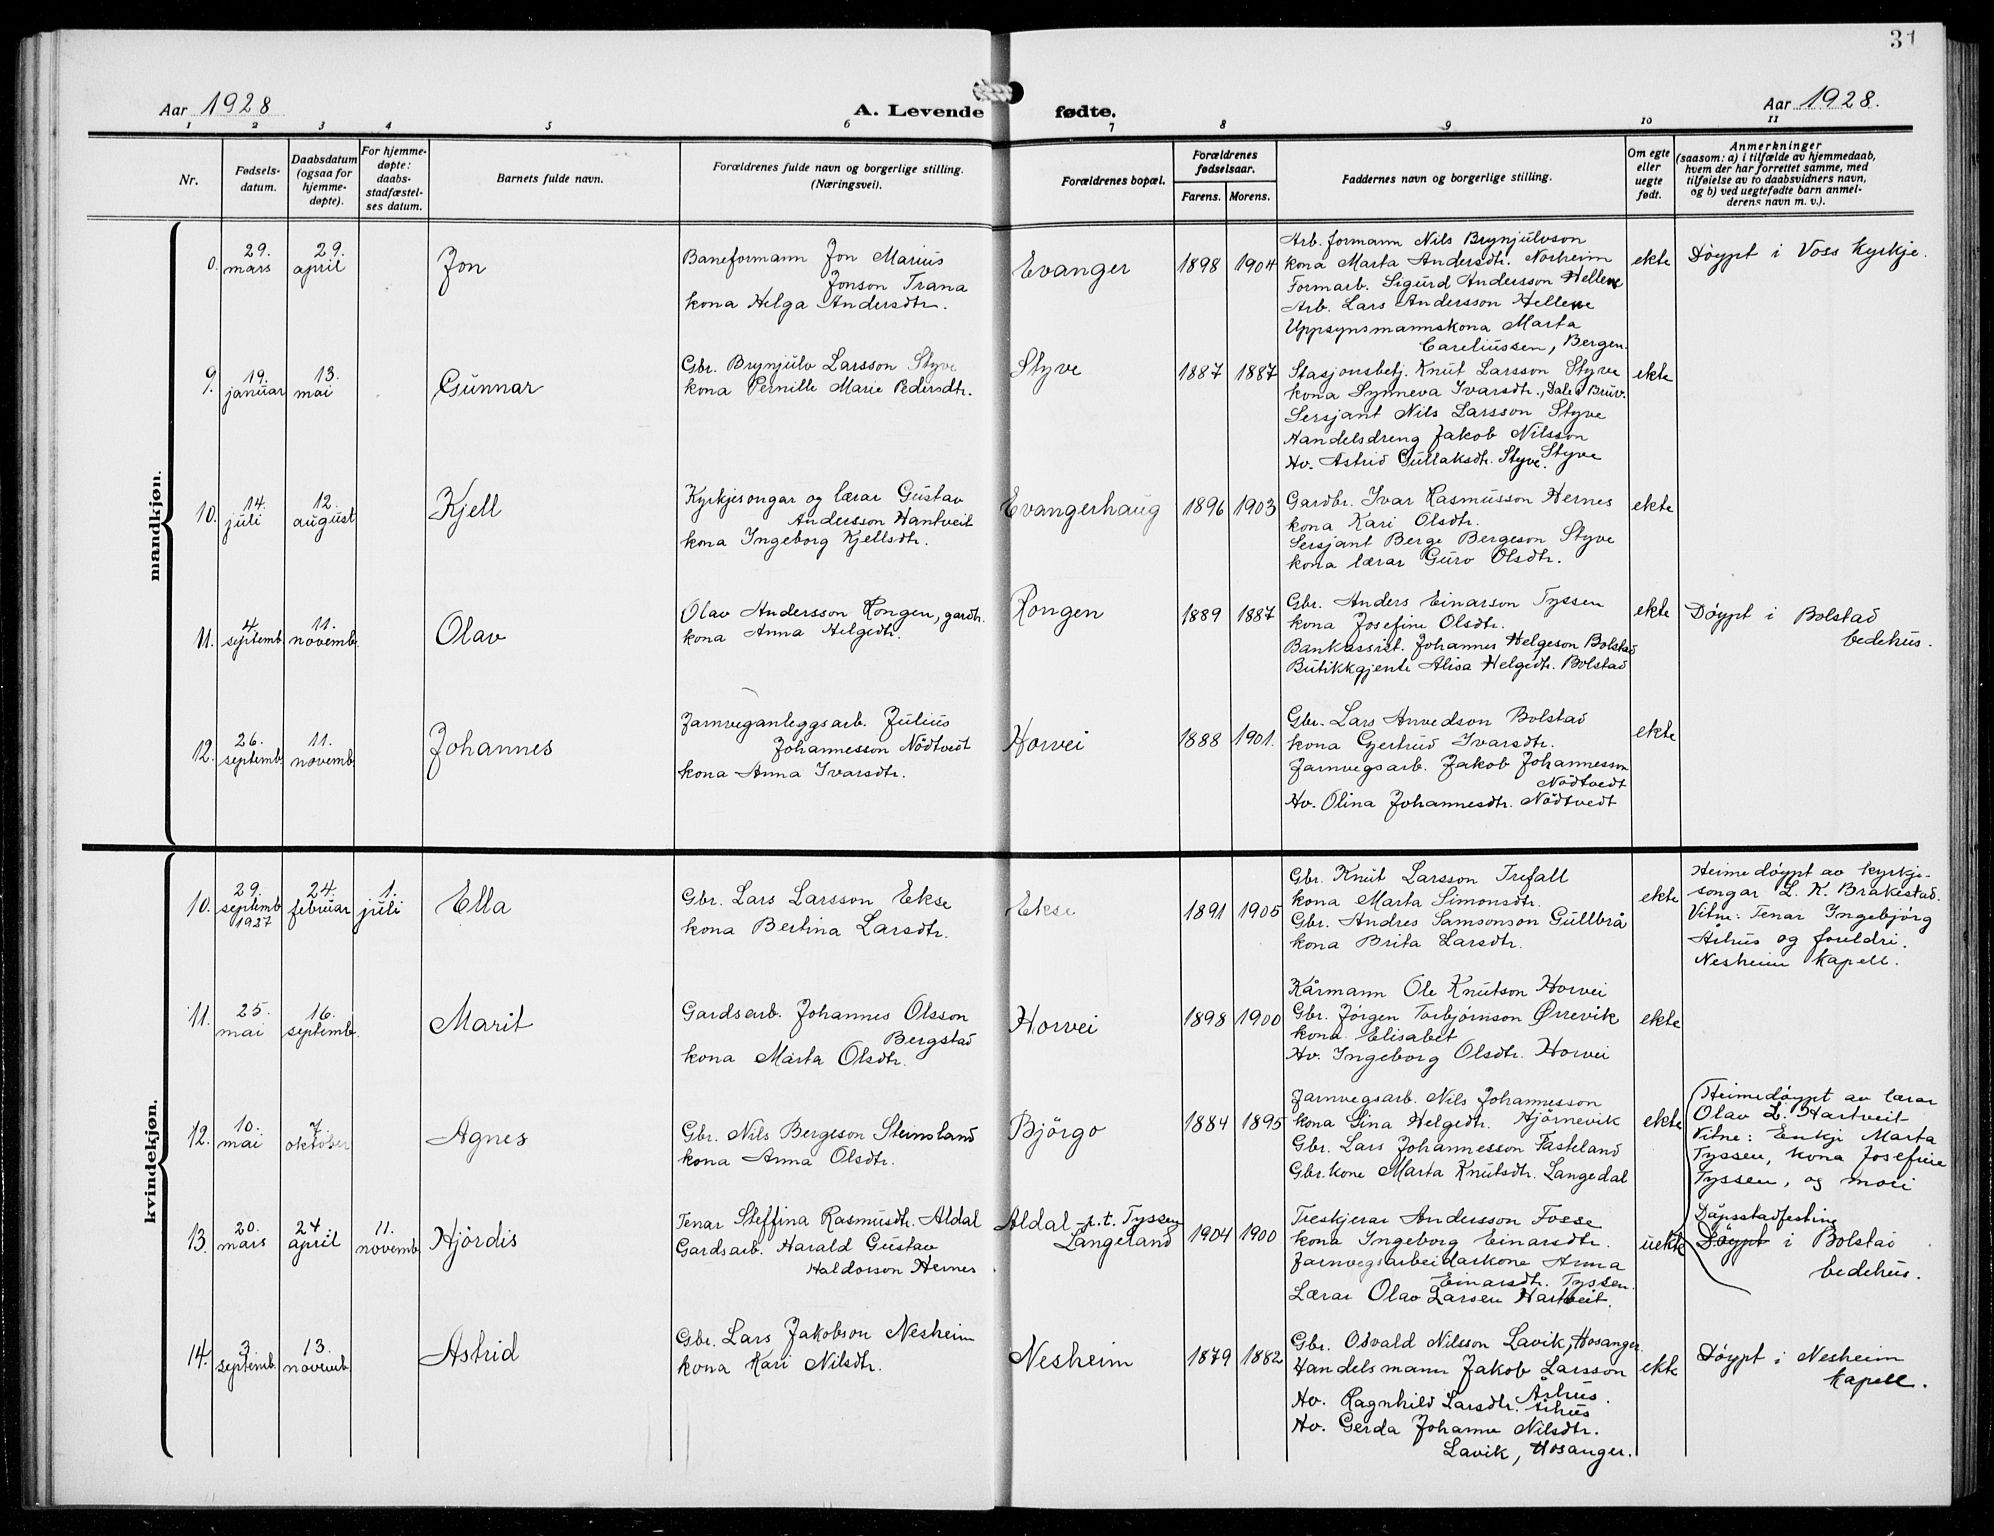 31
Aar 1928
A. Levende fødte.
Aar 1928.
1 2 3 4 5 6 7 8 9 10 11
Nr.
Fødsels-
datum.
Daabsdatum
(ogsaa for
hjemme-
døpte).
For hjemme-
døpte:
daabs-
stadfæstel-
ses datum.
Barnets fulde navn.
Forældrenes fulde navn og borgerlige stilling.
(Næringsvei).
Forældrenes bopæl.
Forældrenes
fødselsaar.
Farens. Morens.
Faddernes navn og borgerlige stilling.
Om egte
eller
uegte
født.
Anmerkninger
(saasom: a) i tilfælde av hjemmedaab,
hvem der har forrettet samme, med
tilføielse av to daabsvidners navn,
og b) ved uegtefødte barn anmel-
derens navn m. v.).
mandkjøn.
29. mars
29. april
Jon
Baneformann Jon Marius
Jonson Trana
kona Helga Andersdtr.
Evanger
1898 1904
Arb. formann Nils Brynjulvson
kona Marta Andersdtr. Norheim
Formarb. Sigurd Andersson Hellene
Arb. Lars Andersson Hellene
Uppsynsmannskona Marta
Careliussen, Bergen.
ekte
Döypt i Voss kyrkje.
9.
19. januar
13. mai
Gunnar
Gbr. Brynjulv Larsson Styve
kona Pernille Marie Pedersdtr.
Styve
1887 1887
Stasjonsbetj. Knut Larsson Styve
kona Synneva Ivarsdtr., Dale i Bruv.
Sersjant Nils Larsson Styve
Handelsdreng Jakob Nilsson
Styve
Hv. Astrid Gullaksdtr. Styve.
ekte
10.
14. juli
12. august
Kjell
Kyrkjesongar og lærar Gustav
Andersson Hantveit
kona Ingeborg Kjellsdtr.
Evangerhaug
1896 1903
Gardbr. Ivar Rasmusson Hernes
kona Kari Olsdtr.
Sersjant Berge Bergeson Styve
kona lærar Guro Olsdtr.
ekte
11.
4. septemb.
11. novemb.
Olav
Olav Andersson Rongen, gardbr.
kona Anna Helgedtr.
Rongen
1889 1887
Gbr. Anders Einarson Tyssen
kona Josefine Olsdtr.
Bankassist. Johannes Helgeson Bolstad
Butikkgjente Alisa Helgedtr. Bolstad
ekte
Döypt i Bolstad
bedehus.
12.
26. septemb.
11. novemb.
Johannes
Jarnveganleggsarb. Julius
Johannesson Nödtvedt
kona Anna Ivarsdtr.
Horvei
1888 1901.
Gbr. Lars Anvedson Bolstad
kona Gjertrud Ivarsdtr.
Jarnvegsarb. Jakob Johannesson
Nödtvedt
Hv. Olina Johannesdtr. Nödtvedt
ekte
kvindekjøn.
10.
29. septemb. 1927
24. februar
1. juli
Ella
Gbr. Lars Larsson Ekse
kona Bertina Larsdtr.
Ekse
1891 1905
Gbr. Knut Larsson Trefall
kona Marta Simonsdtr.
Gbr. Andres Samsonson Gullbrå
kona Brita Larsdtr.
ekte
Heimedöypt av kyrkje-
songar L. K. Brakestad.
Vitne: Tenar Ingebjörg
Århus og foreldri.
Nesheim kapell.
11.
25. mai
16. septemb.
Marit
Gardsarb. Johannes Olsson
Bergstad
kona Marta Olsdtr.
Horvei
1898 1900
Kårmann Ole Knutson Horvei
Gbr. Jørgen Torbjørnson Ørrevik
kona Elisabet
Hv. Ingeborg Olsdtr. Horvei
ekte
12.
10. mai
7. oktober
Agnes
Gbr. Nils Bergeson Steinsland
kona Anna Olsdtr.
Björgo
1884 1895
Jarnvegsarb. Nils Johannesson
kona Sina Helgedtr. Hjörnevik
Gbr. Lars Johannesson Fasteland
Gbr.kone Marta Knutsdtr. Langedal
ekte
Heimedöypt av lærar
Olav L. Hartveit
Vitne: Enkje Marta
Tyssen, kona Josefine
Tyssen, og mori
13.
20. mars
24 april
11. novemb.
Hjördis
Tenar Steffina Rasmusdtr. Aldal
Gardsarb. Harald Gustav
Haldorson Hernes
Aldal p.t. Tyssen
Langeland
1904 1900
Treskjerar Andersson Fosse
kona Ingeborg Einarsdtr.
Jarnvegsarbeidarkone Anna
Einarsdtr. Tyssen.
Lærar Olav Larsen Hartveit.
uekte
Dåpsstadfesting
Döypt i Bolstad
bedehus.
14.
3. septemb.
13. novemb.
Astrid
Gbr. Lars Jakobson Nesheim
kona Kari Nilsdtr.
Nesheim
1879 1882
Gbr. Osvald Nilsson Lavik, Hosanger
Handelsmann Jakob Larsson
Århus.
Hv. Ragnhild Larsdtr. Århus
Hv. Gerda Johanne Nilsdtr.
Lavik, Hosanger.
ekte
Döypt i Nesheim
kapell.